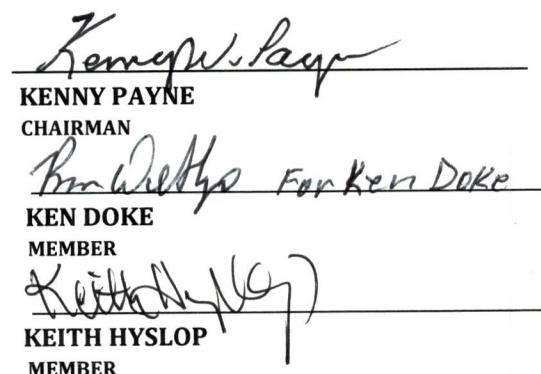 Kenny W. Payne
KENNY PAYNE
CHAIRMAN
For Ken Doke
KEN DOKE
MEMBER
Keith Hyslop
KEITH HYSLOP
MEMBER